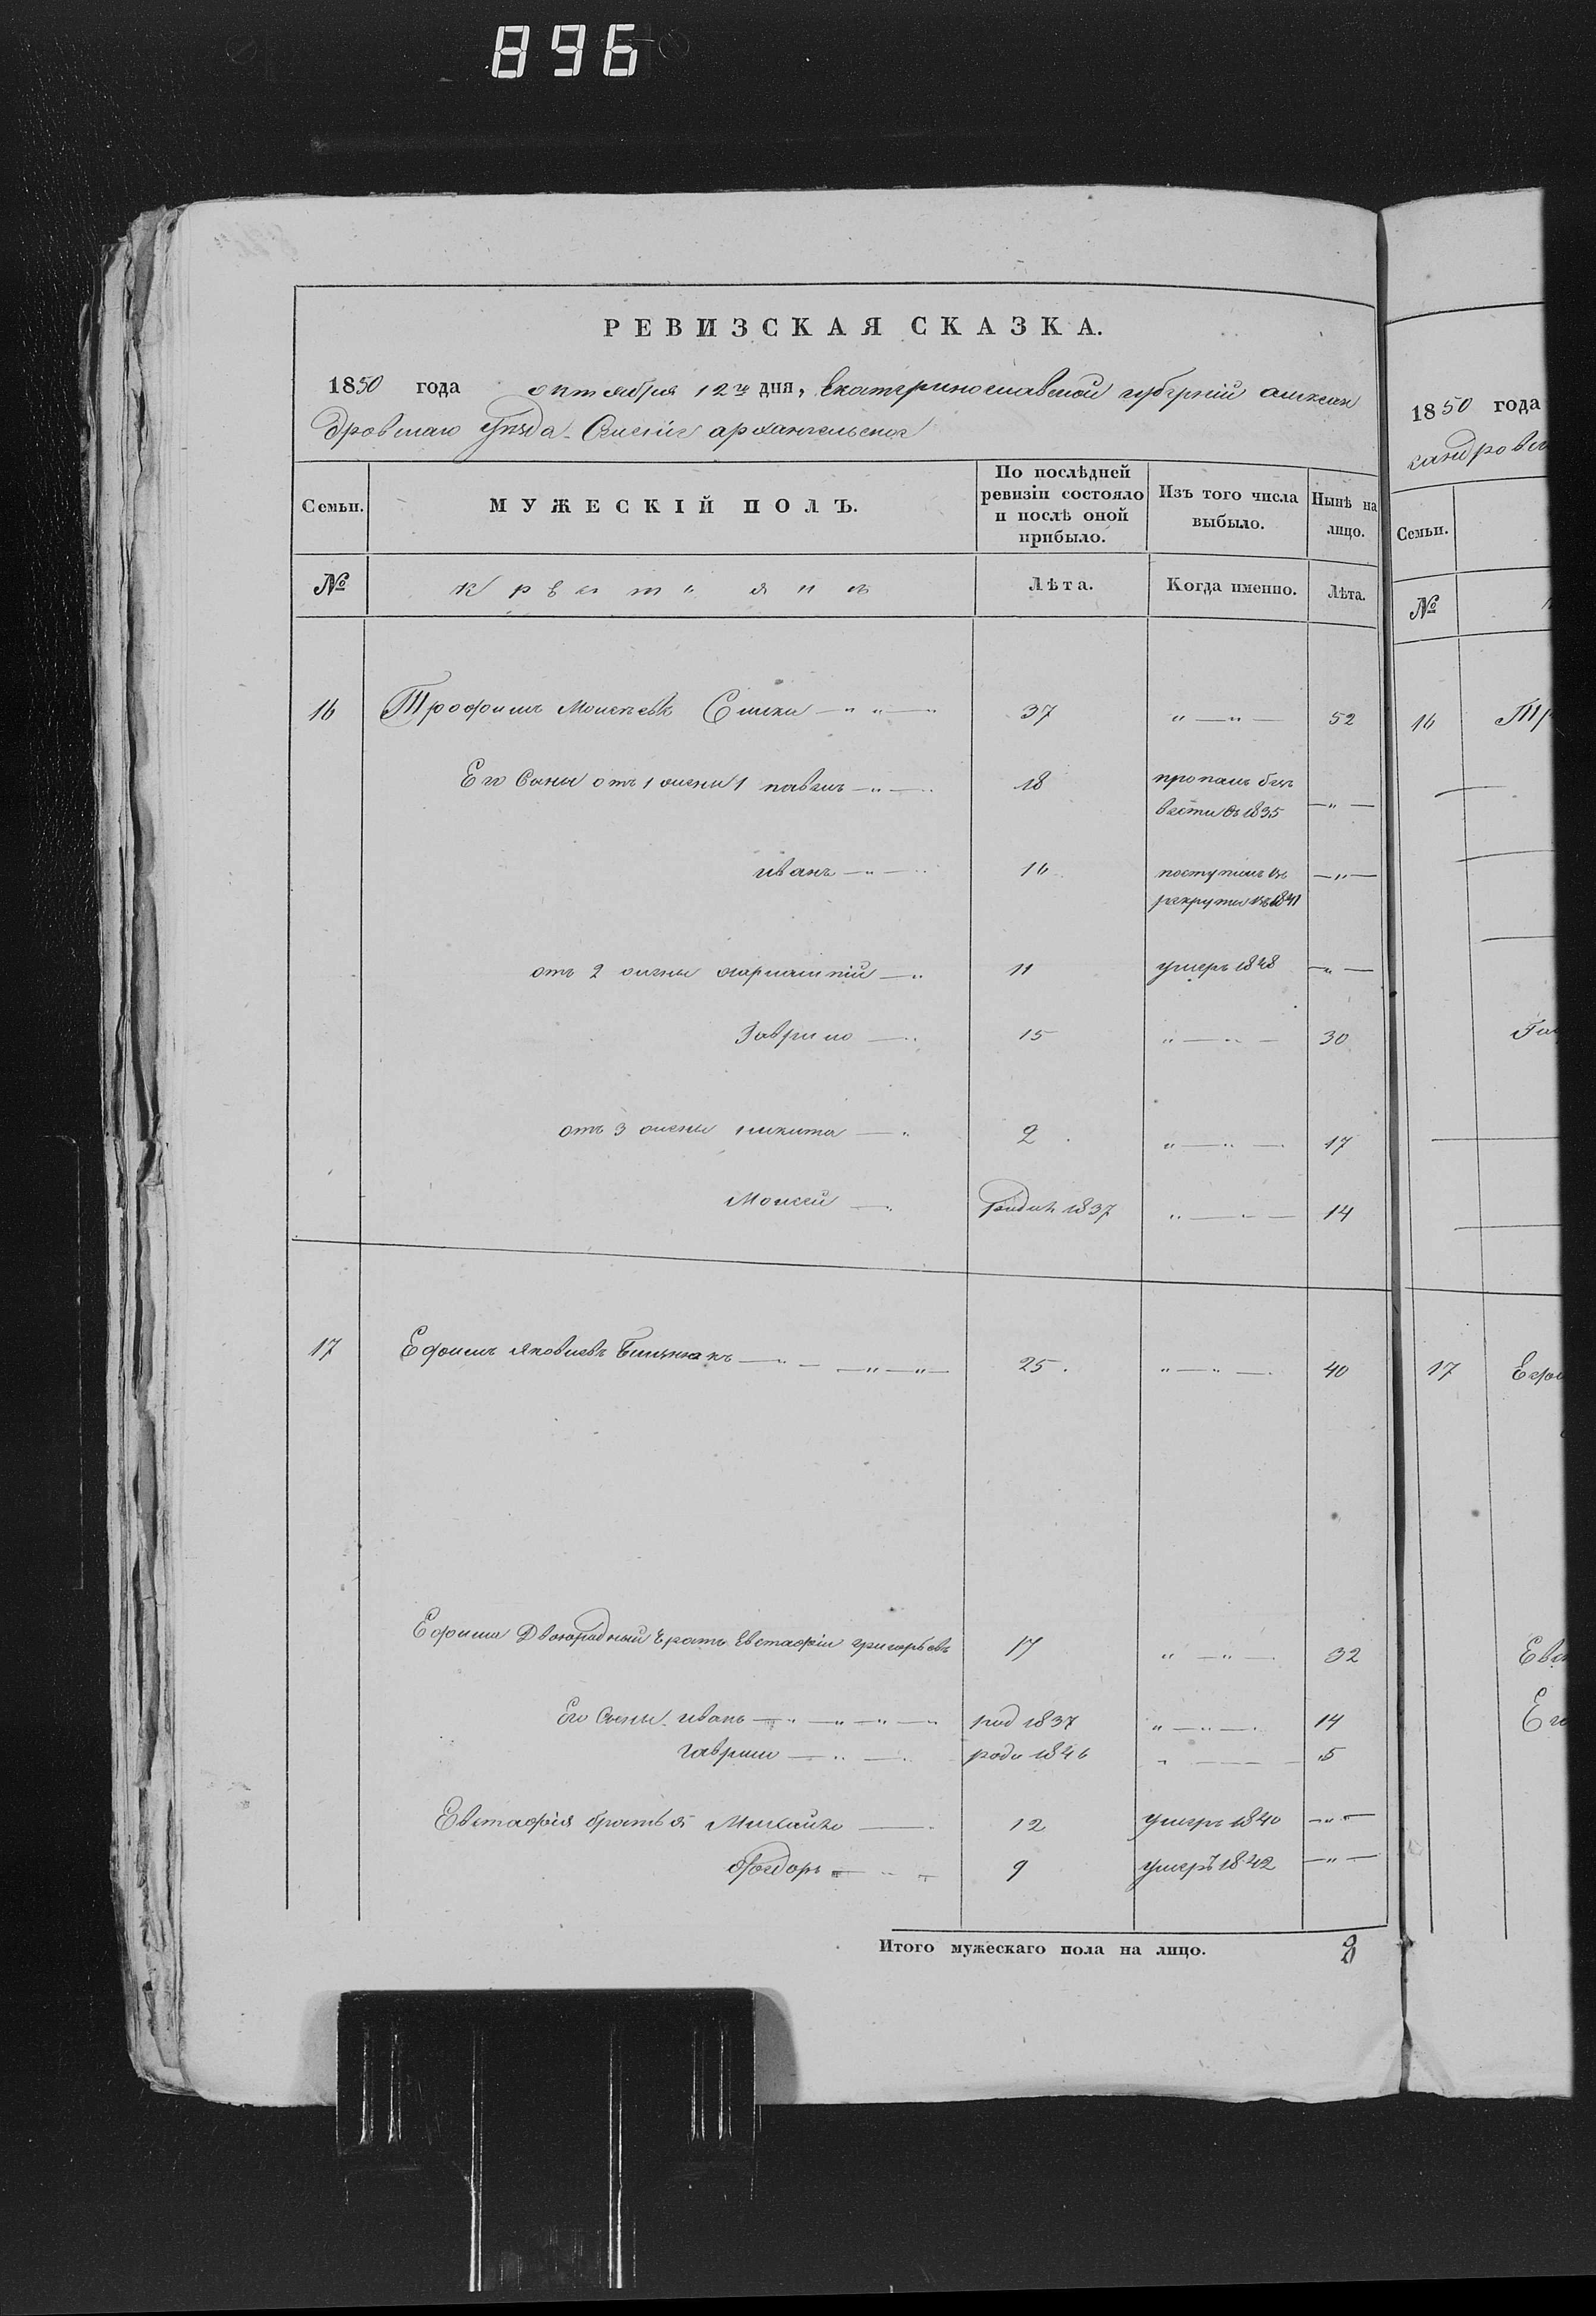 896
РЕВИЗСКАЯ СКАЗКА.
1850 года октября 12го дня, Екатеринославской губерніи алексан
дровскаго Уѣзда Селеніе архангельское
Семьи. МУЖЕСКІЙ ПОЛЪ. По послѣдней ревизіи состояло и послѣ оной прибыло. Изъ того числа выбыло. Нынѣ на лицо.
№ Лѣта. Когда именно. Лѣта.
16 Трофимъ Моисеевъ 37 " — " — 52
Его Сыны отъ 1 жены 1 павелъ — " — 18 пропалъ безъ
вести въ 1835 — " —
иванъ — " — 16 поступилъ въ
рекруты въ 1841 — " —
отъ 2 жены — " 11 умеръ 1848 — " —
Гаврило — " 15 " — " — 30
отъ 3 жены никита — " 2 " — " — 17
Моисей — " родил 1837 " — " — 14
17 Ефимъ Яковлевъ — " — — " — " — 25 " — " — 40
Ефима Двоюродный братъ Евстафій григорьевъ 17 " — " — 32
Его Сыны иванъ — " — " — " — " род 1837 " — " — 14
гаврило — " — роди 1846 " — 5
Евстафія братья Михайло — 12 умеръ 1840 — " —
Фѳедоръ — " — 9 умеръ 1842 — " —
Итого мужескаго пола на лицо. 8
1850 года
Семьи.
№
16 Тр
Га
17
Евс
Ег